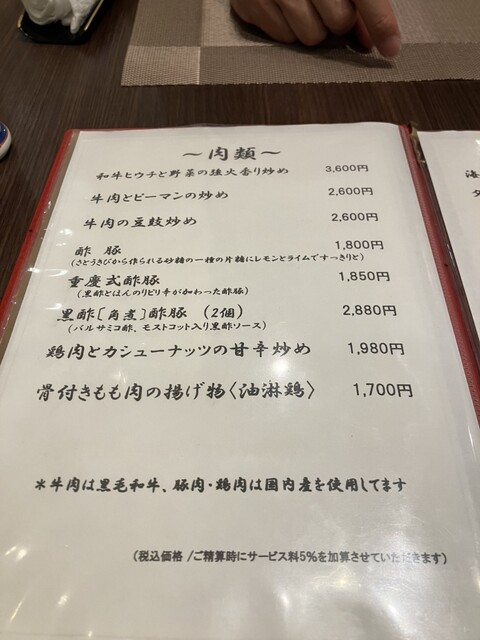 ～肉類～
和牛ヒウチと野菜の強火香り炒め 3,600円
牛肉とピーマンの炒め 2,600円
牛肉の豆鼓炒め 2,600円
酢 豚 1,800円
(さとうきびから作られる砂糖の一種の片糖にレモンとライムですっきりと)
重慶式酢豚 1,850円
(黒酢とほんのりピリ辛が加わった酢豚)
黒酢[角煮]酢豚 (2個) 2,880円
(バルサミコ酢、モストコット入り黒酢ソース)
鶏肉とカシューナッツの甘辛炒め 1,980円
骨付きもも肉の揚げ物〈油淋鶏〉 1,700円
＊牛肉は黒毛和牛、豚肉・鶏肉は国内産を使用してます
(税込価格 /ご精算時にサービス料5%を加算させていただきます)